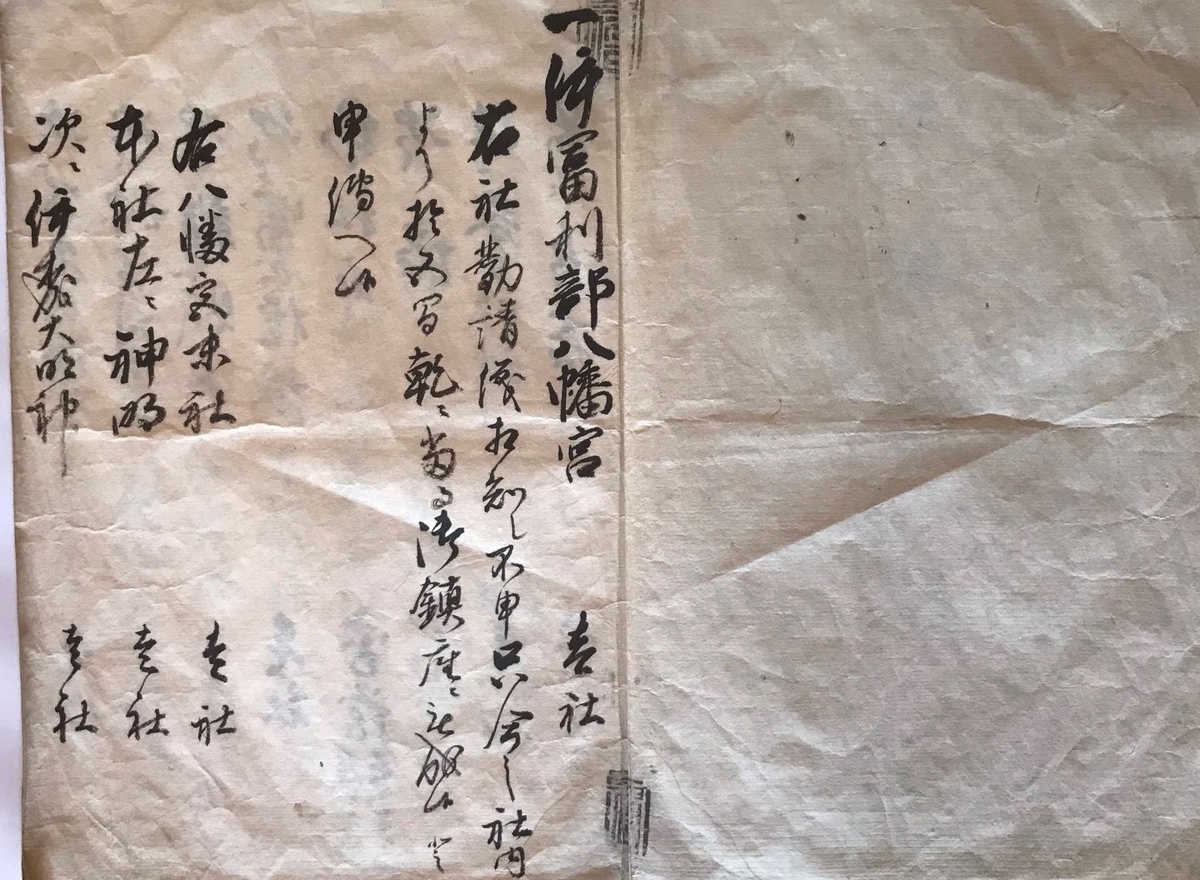 一 伊富利部八幡宮 壱社
右社勧請儀相知レ不申只今之社内
より於文間乾ニ当る御鎮座ニ御座候と
申伝へ候
右八幡宮末社 壱社
本社左ニ神明 壱社
次ニ伊勢大明神 壱社